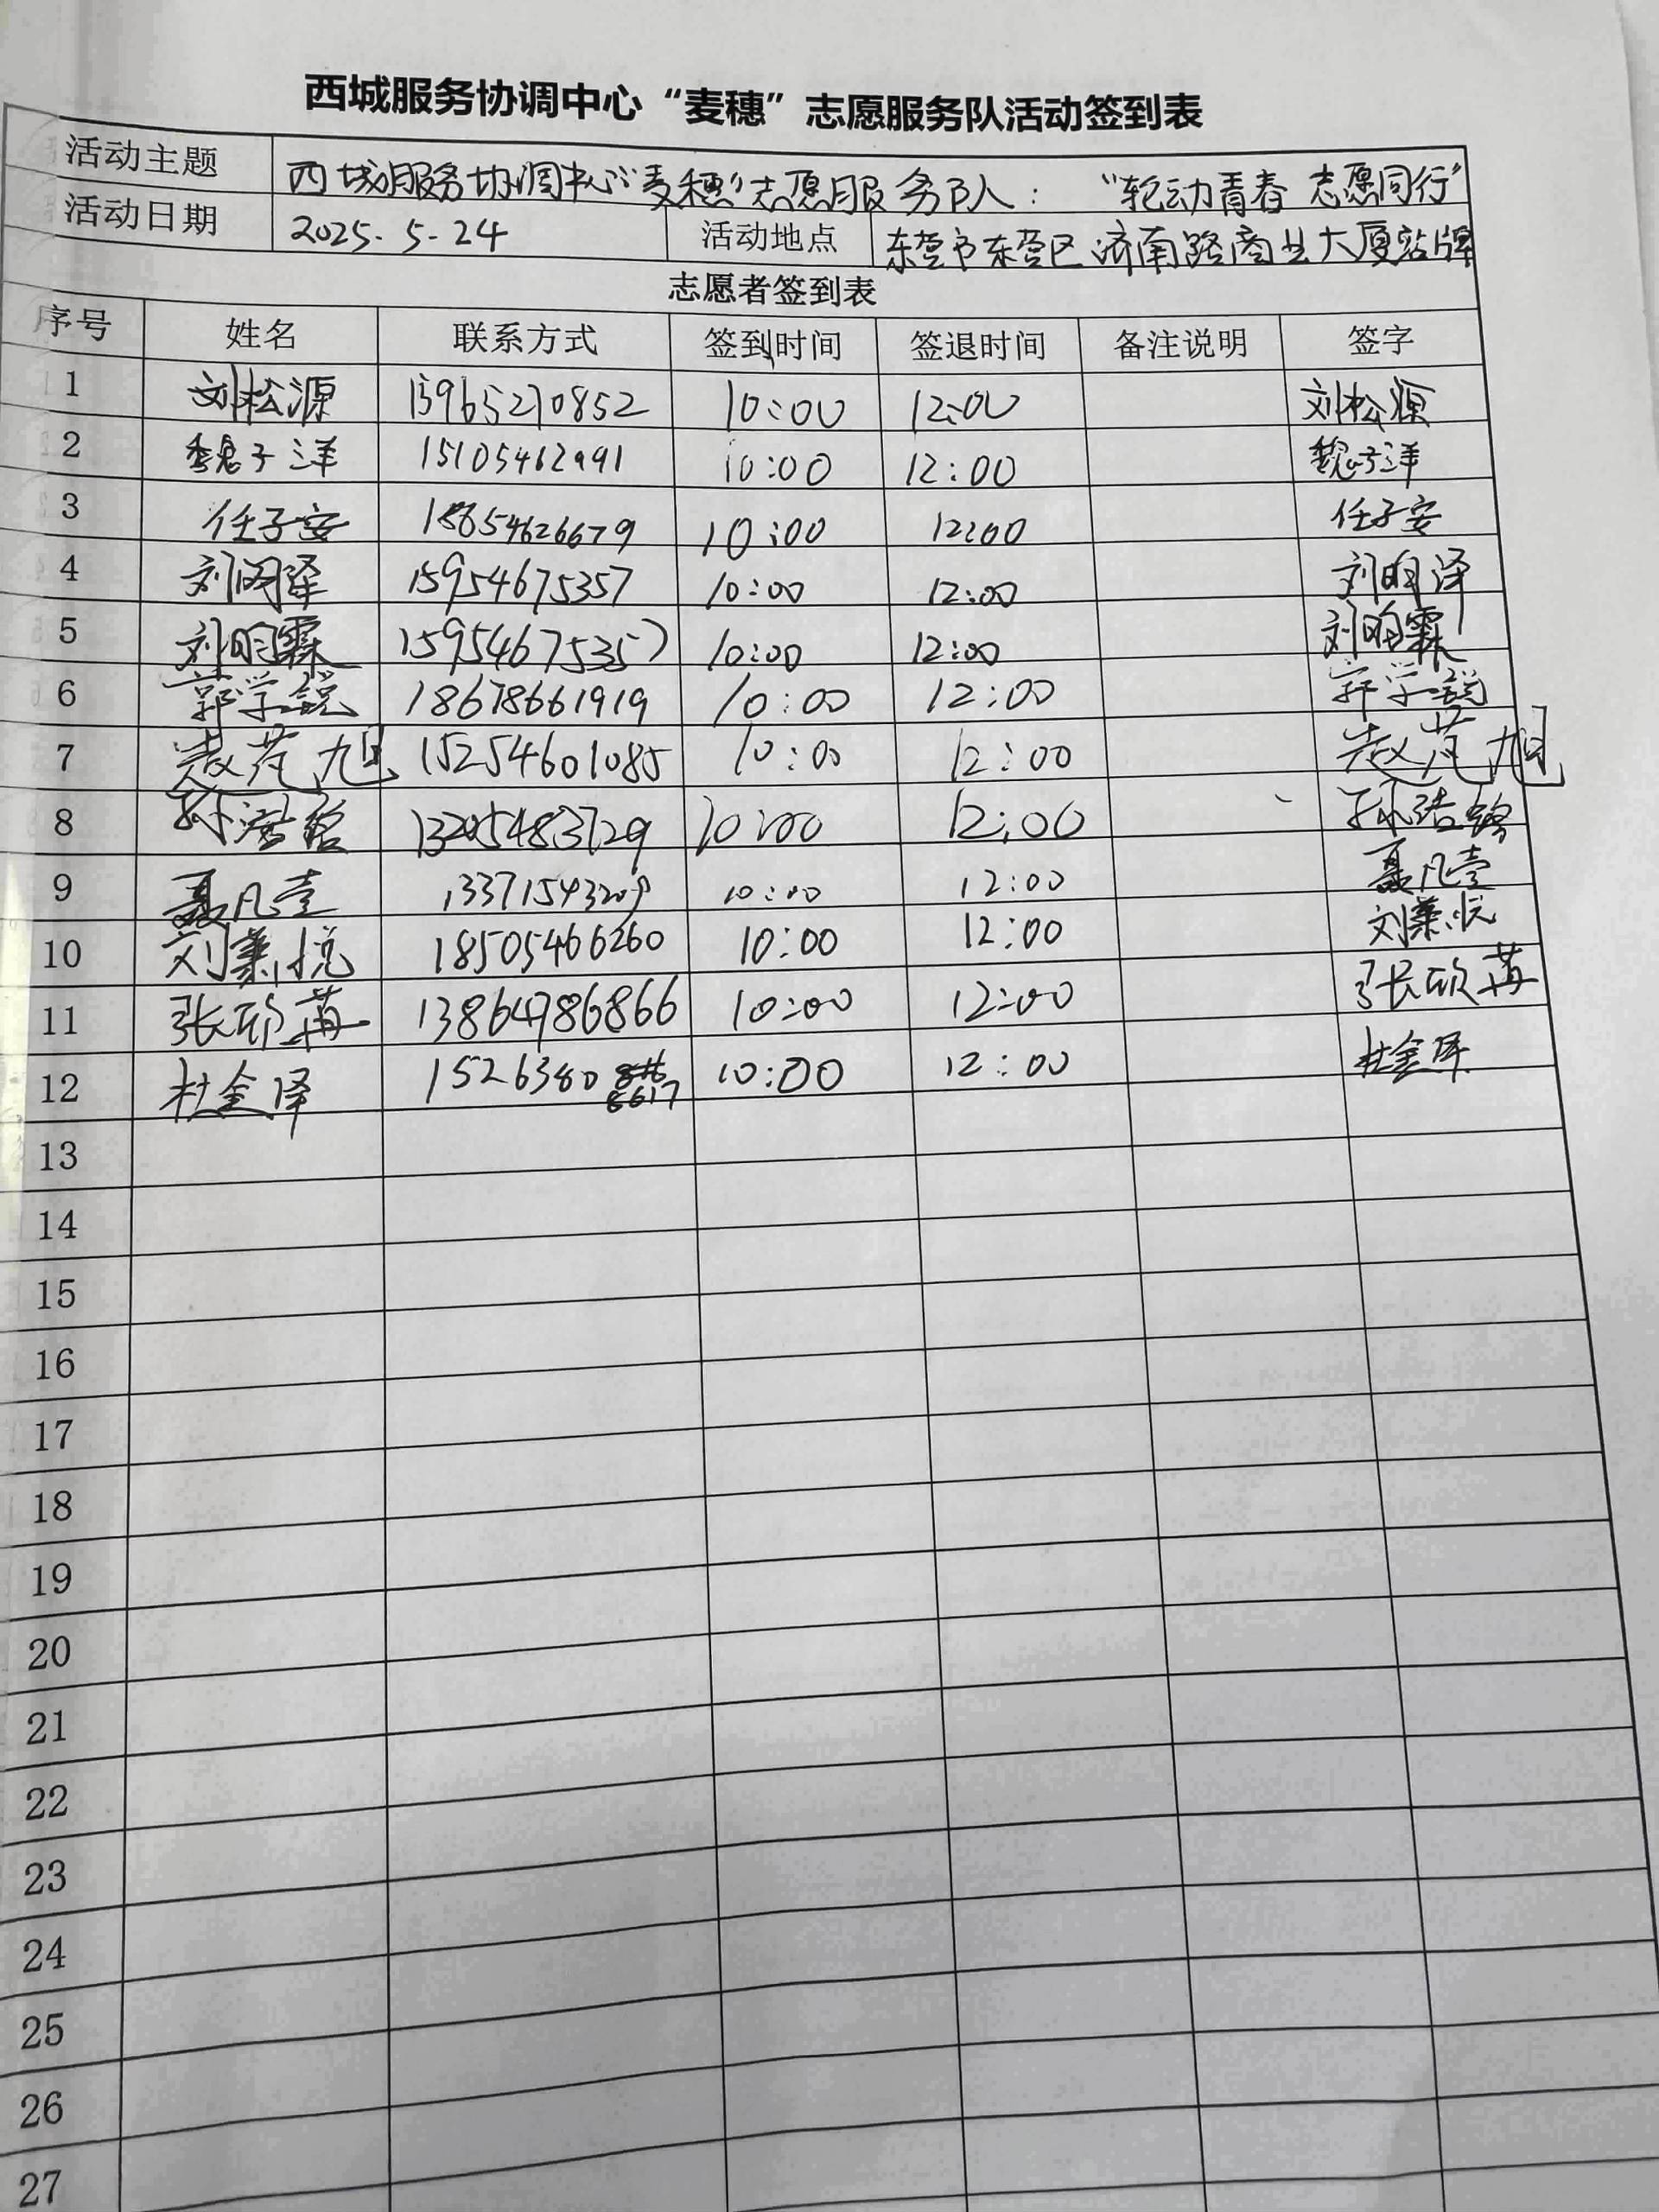 西城服务协调中心“麦穗”志愿服务队活动签到表
活动主题 西城服务协调中心“麦穗”志愿服务队： “轮动青春 志愿同行”
活动日期 2025.5.24 活动地点 东营市东营区济南路商业大厦站牌
志愿者签到表
序号 姓名 联系方式 签到时间 签退时间 备注说明 签字
1 刘松源 15965270852 10:00 12:00 刘松源
2 魏子洋 15105462991 10:00 12:00 魏子洋
3 任子安 18654626679 10:00 12:00 任子安
4 刘明泽 15954675357 10:00 12:00 刘明泽
5 刘明霖 15954675357 10:00 12:00 刘明霖
6 郭学锐 18678661919 10:00 12:00 郭学锐
7 旭 15254601085 10:00 12:00 旭
8 孙浩 10:00 12:00 孙浩
9 聂凡壹 13371543209 10:00 12:00 聂凡壹
10 刘 悦 18505466260 10:00 12:00 刘 悦
11 张欣苒 13864786866 10:00 12:00 张欣苒
12 杜金泽 1526380 6617 10:00 12:00 杜金泽
13
14
15
16
17
18
19
20
21
22
23
24
25
26
27